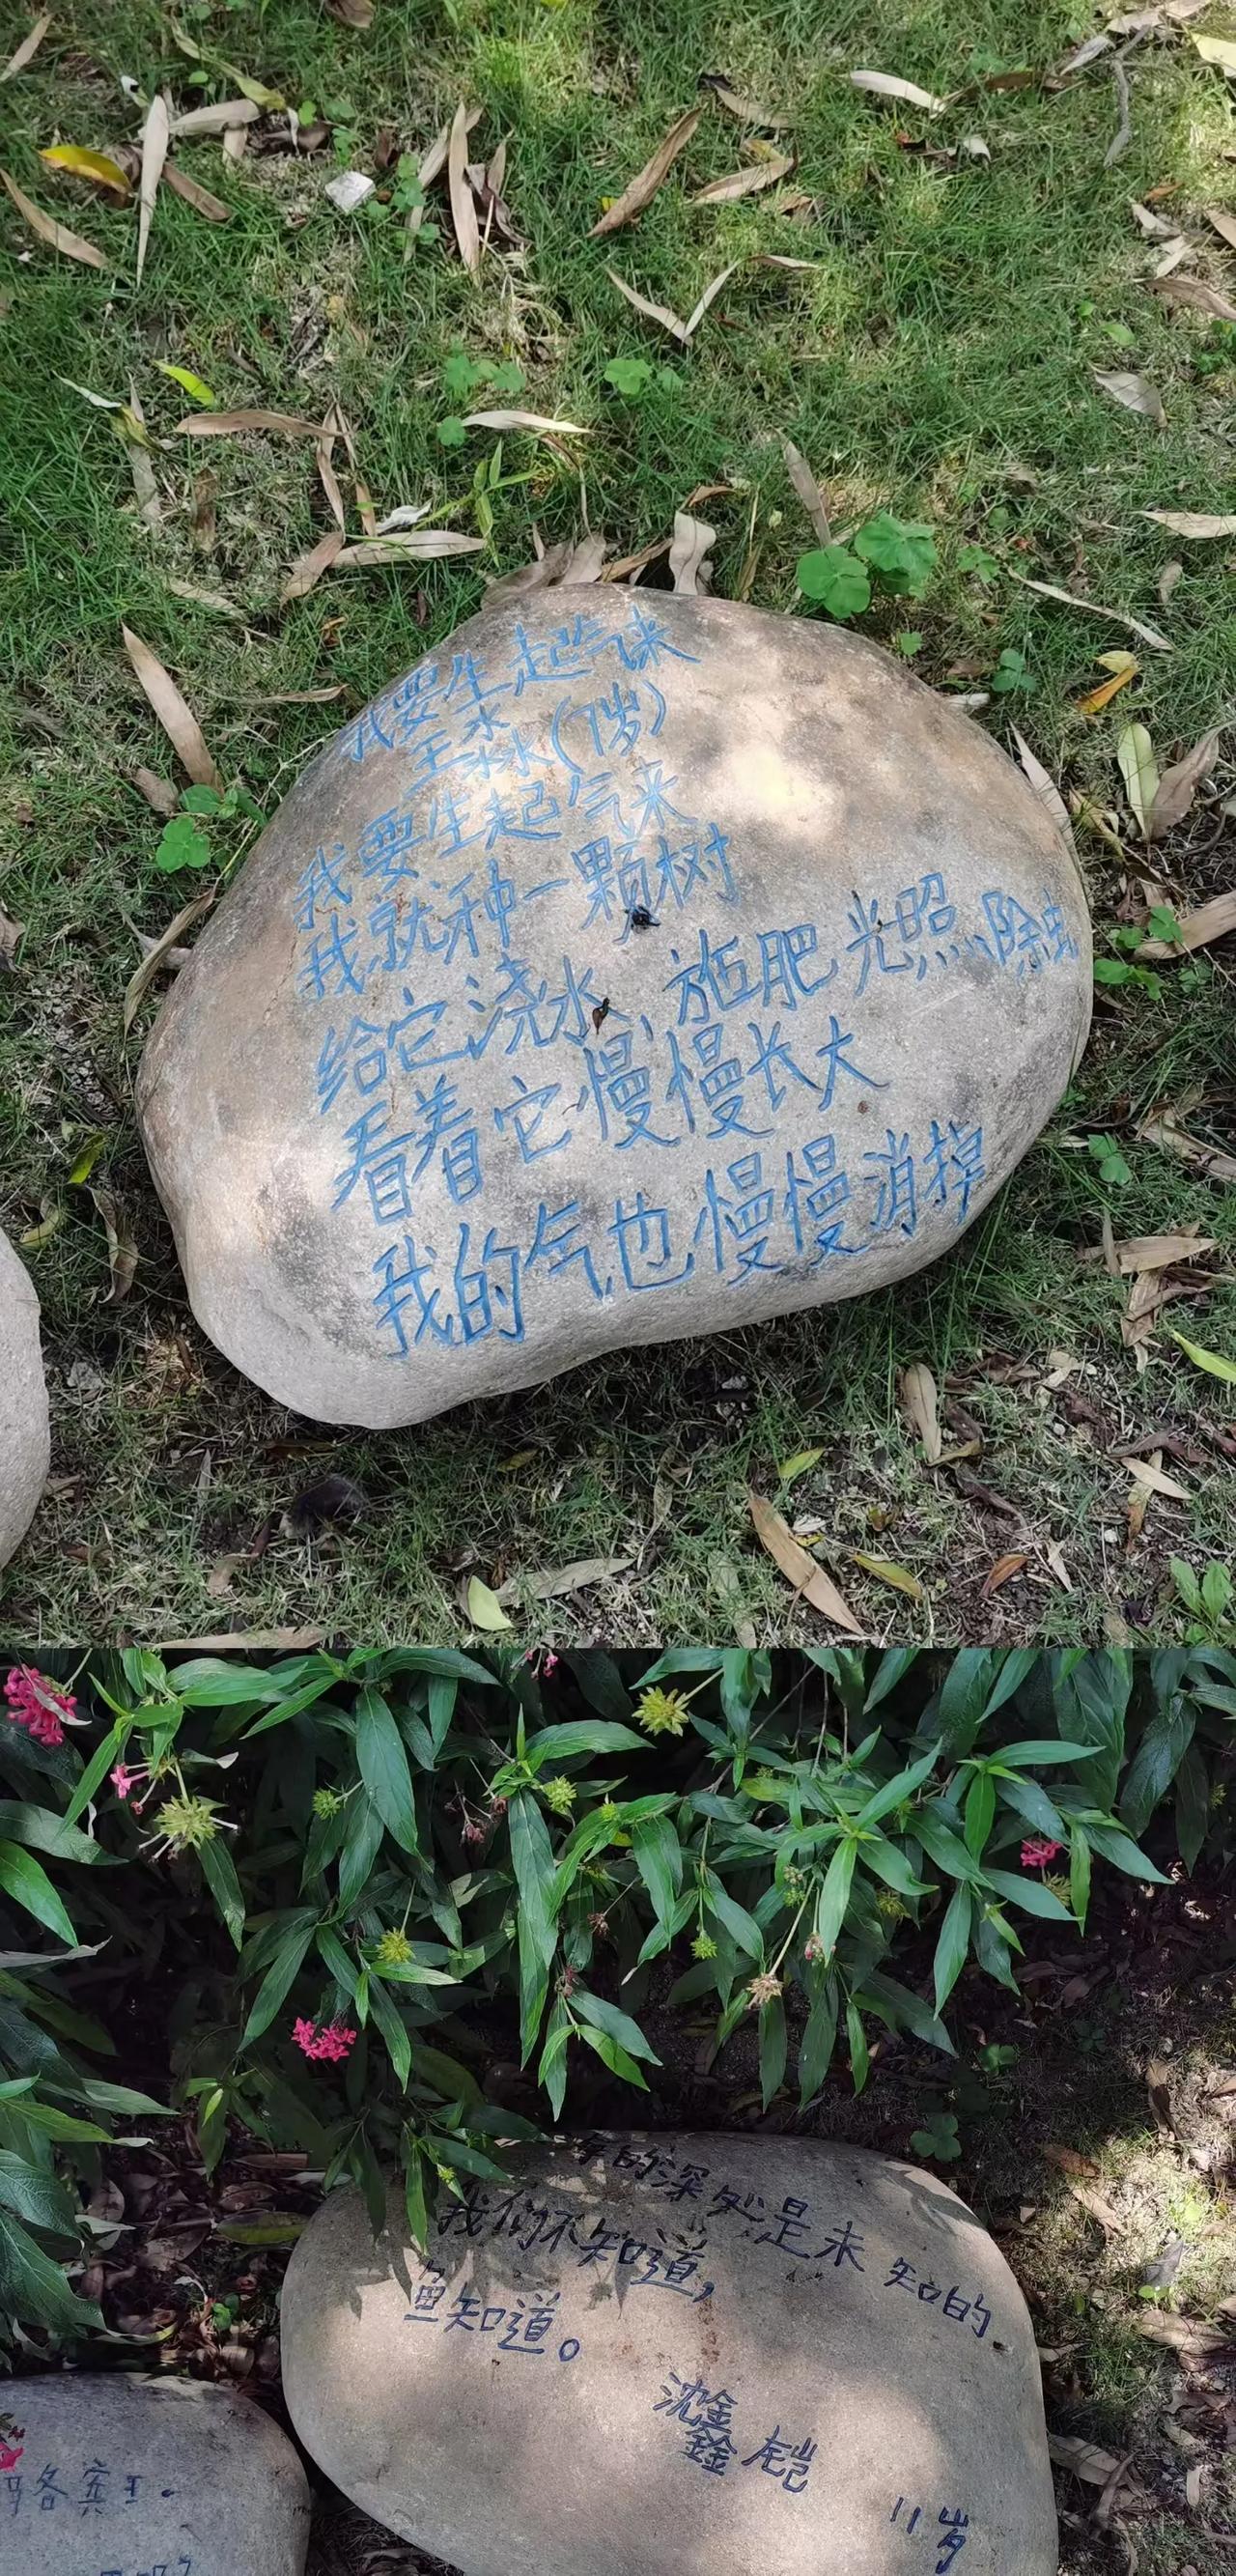 我要生起气来
王淼(7岁)
我要生起气来
我就种一颗树
给它浇水、施肥 光照 除虫
看着它慢慢长大
我的气也慢慢消掉
的深处是未知的
我们不知道,
鱼知道。
沈鑫铠
11岁
各宾王.